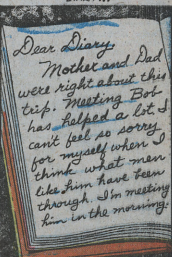 Dear Diary,
Mother and Dad
were right about this
trip. Meeting Bob
has helped a lot I
can't feel so sorry
for myself when I
think what men
like him have been
through. I'm meeting
him in the morning.